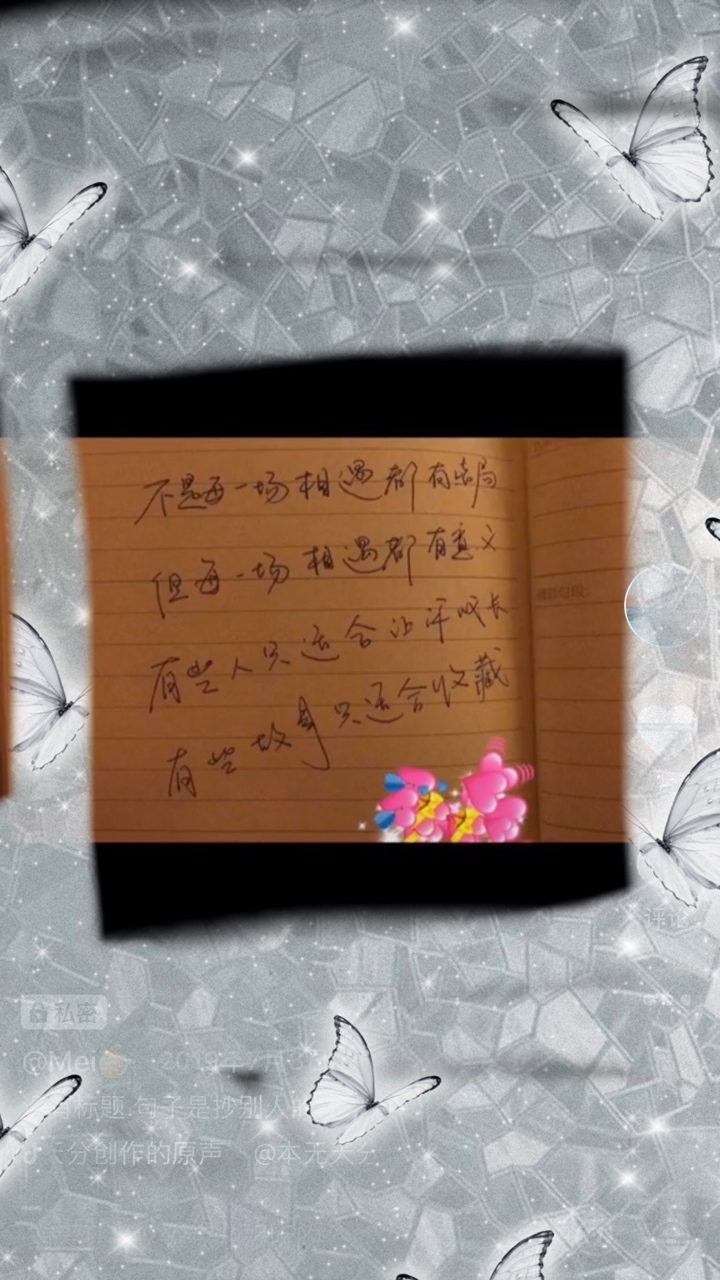 不是每一场相遇都有结局
但每一场相遇都有意义
有些人只适合让评成长
有些故事只适合收藏
私密
@Mei
2019年
标题.句子是抄别人
天分创作的原声 @本无天分
评论